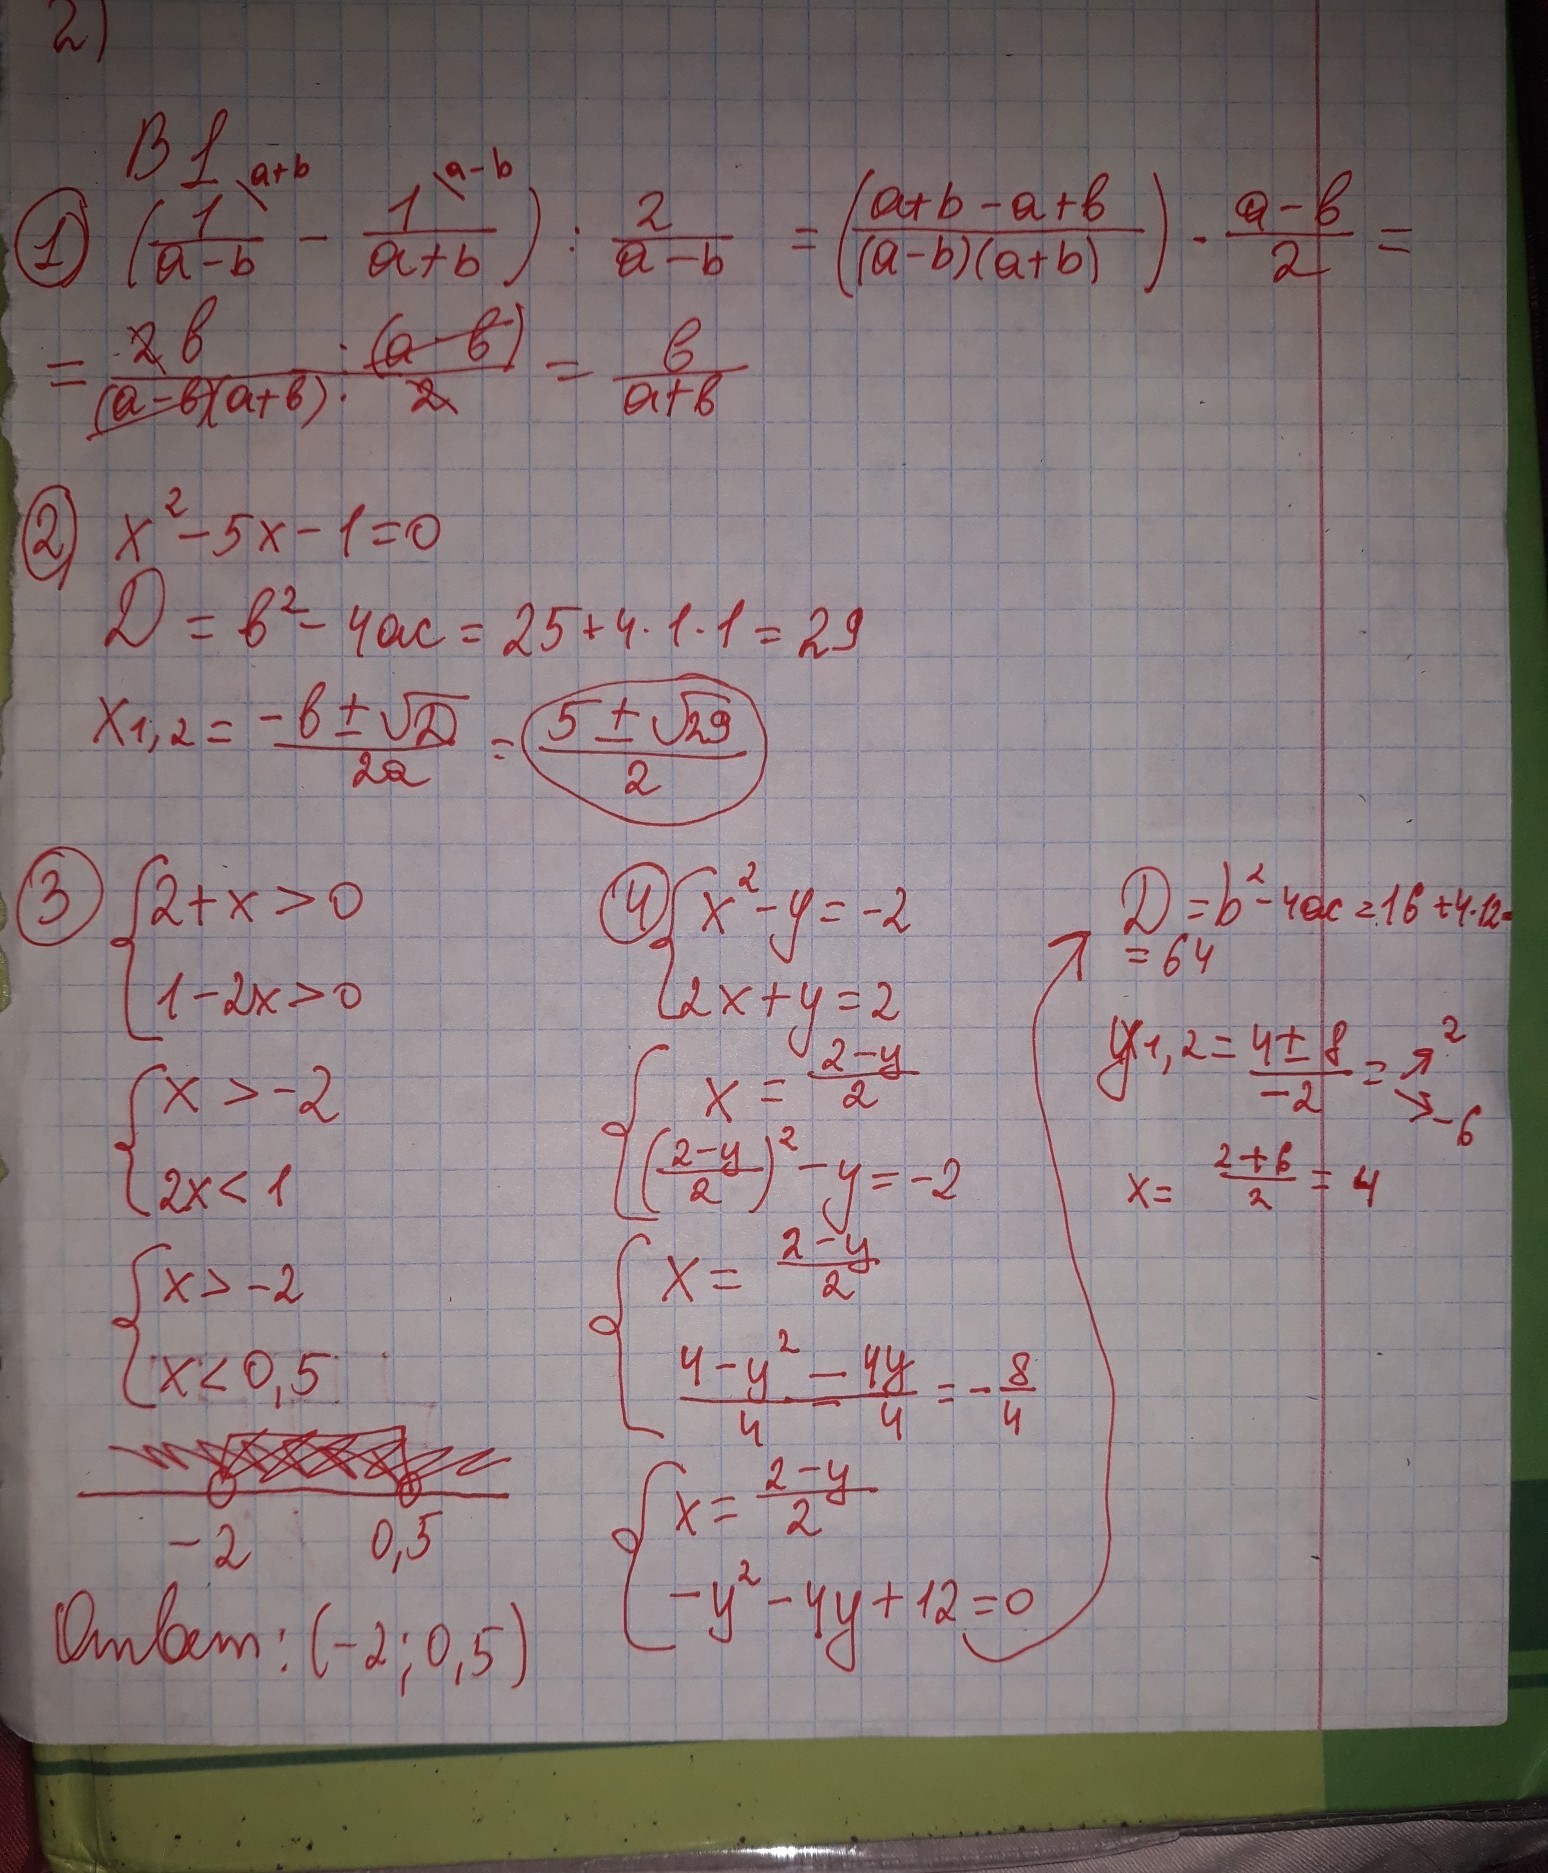 2)
В 1
① (1/(a-b) \a+b - 1/(a+b) \a-b) : 2/(a-b) = ((a+b-a+b)/((a-b)(a+b))) · (a-b)/2 =
= 2b/((a-b)(a+b)) · (a-b)/2 = b/(a+b)
② x² - 5x - 1 = 0
D = b² - 4ac = 25 + 4·1·1 = 29
x1,2 = (-b ± √D)/2a = (5 ± √29)/2
③ { 2+x > 0
1-2x > 0
{ x > -2
2x < 1
{ x > -2
x < 0,5
-2 0,5
Ответ: (-2; 0,5)
④ { x² - y = -2
2x + y = 2
{ x = (2-y)/2
((2-y)/2)² - y = -2
{ x = (2-y)/2
(4-y²)/4 - 4y/4 = -8/4
{ x = (2-y)/2
-y² - 4y + 12 = 0
D = b² - 4ac = 16 + 4·12 =
= 64
y1,2 = (4 ± 8)/-2 = 2
-6
x = (2+6)/2 = 4